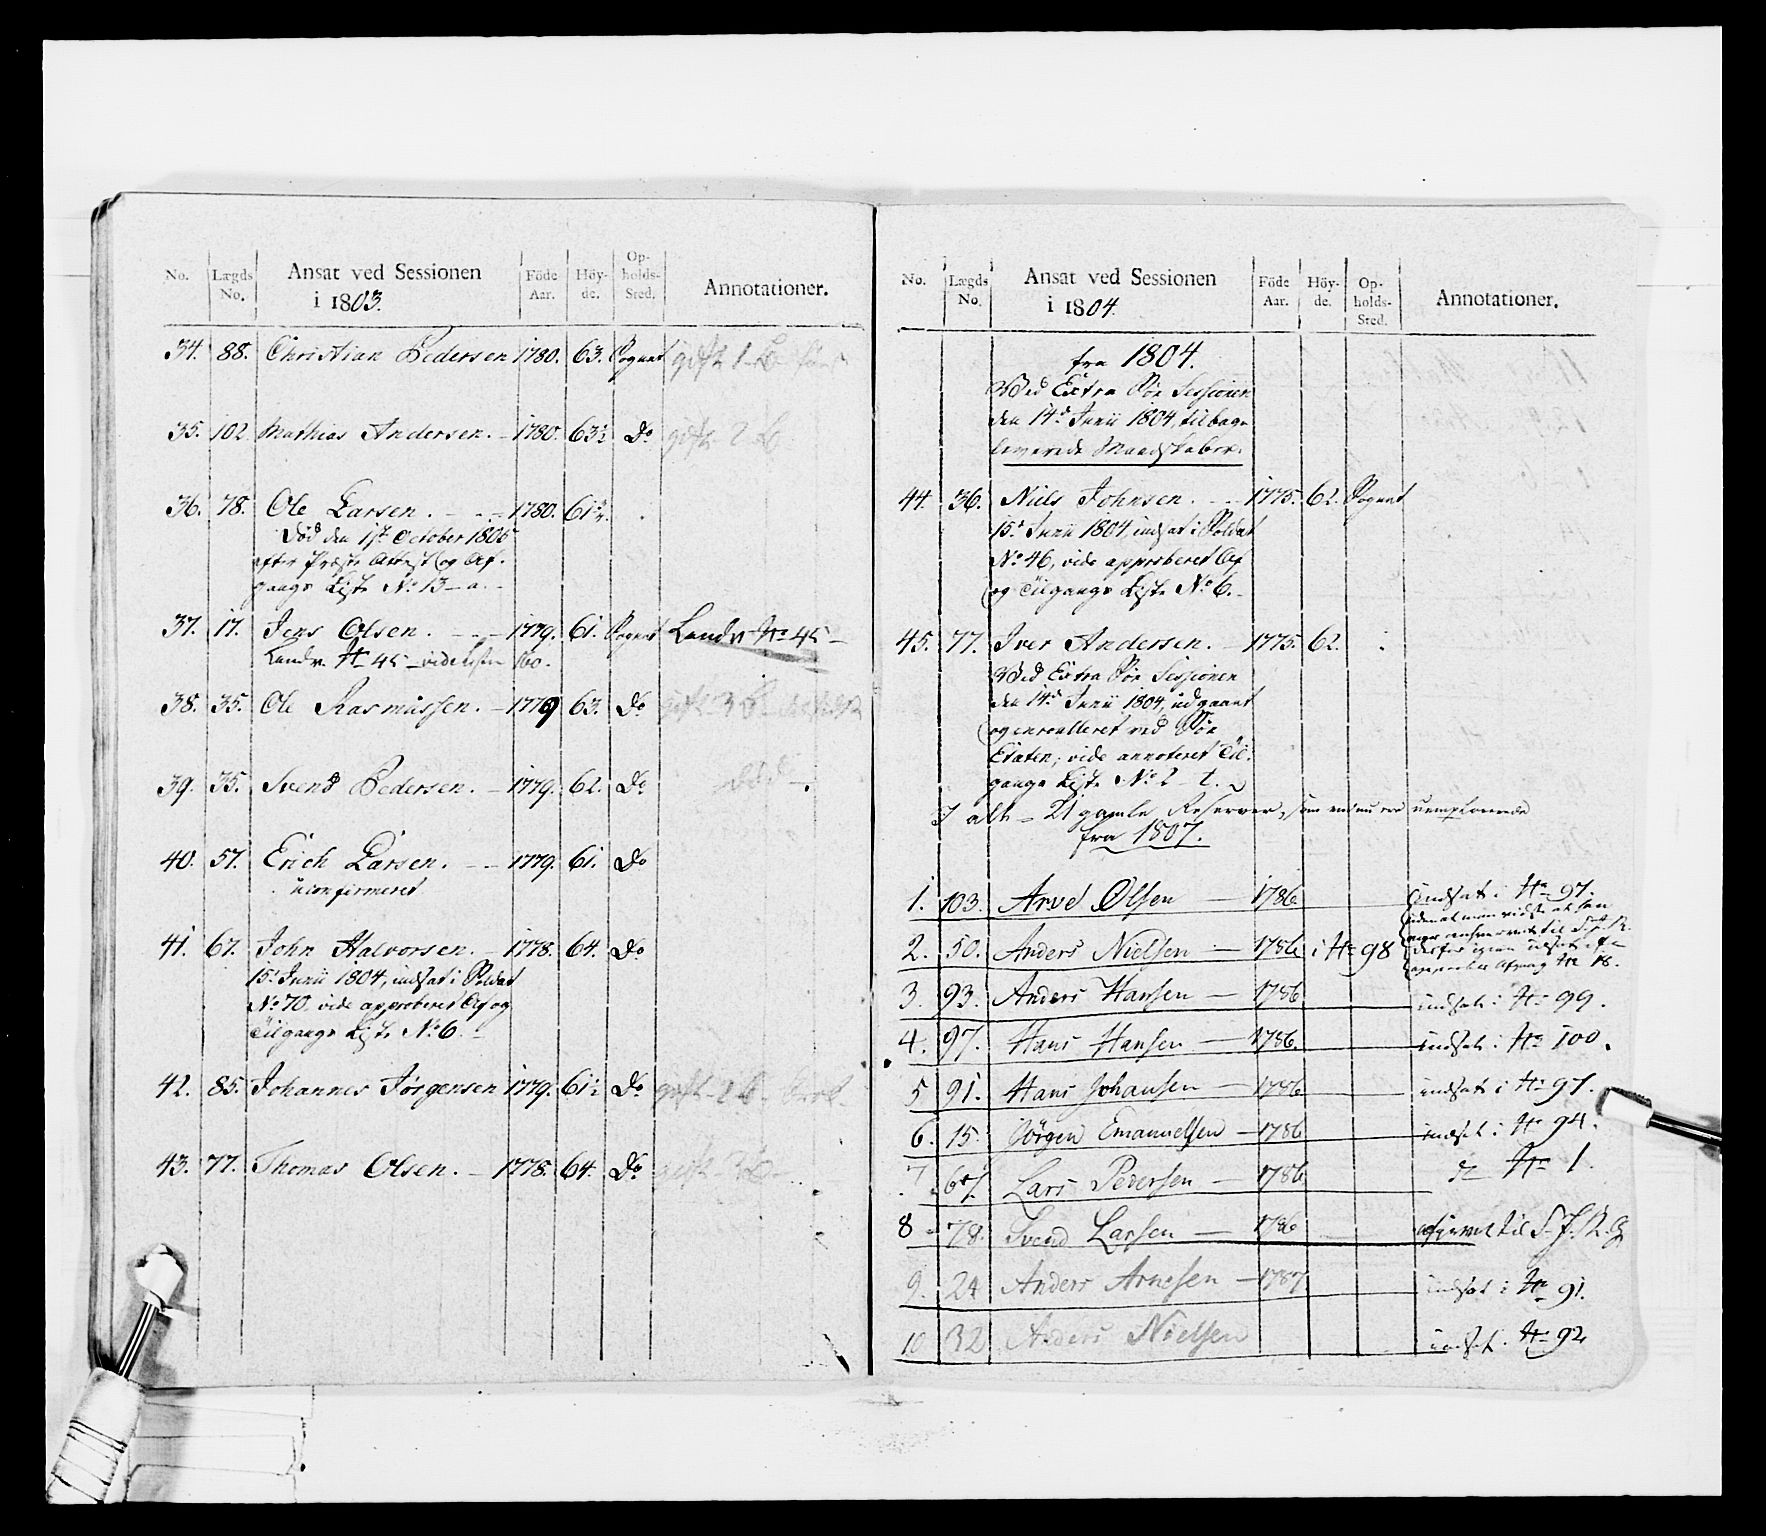 No. Lægds No. Ansat ved Sessionen i 1803. Föde Aar. Höyde. Opholds-Sted. Annotationer.
34. 88. Christian Pedersen 1780. 63. Sognet gift 1 B
35. 102. Mathias Andersen. – 1780. 63½ Do gift 2 B
36. 78. Ole Larsen. – – 1780. 61½.
Död den 1st October 1805
efter Præste Attest og Af-
gangs Liste No 13 – a. –
37. 17. Jens Olsen. – – 1779. 61. Sognet Landv. No 45 –
Landv. No 45 – vide Listen
38. 35. Ole Rasmussen. – 1779 63. Do gift 3 B
39. 35. Svend Pedersen. – 1779. 62. Do död –
40. 57. Erich Larsen. – – 1779. 61. Do
uconfirmeret
41. 67. John Halvorsen. – 1778. 64. Do
15d Junii 1804, indsat i Soldat
No 70, vide approberet Af og
Tilgangs Liste No 6. –
42. 85. Johannes Jörgensen 1779. 61½ Do gift – 2 B.
43. 77. Thomas Olsen. – 1778. 64. Do gift – 3 B –
No. Lægds No. Ansat ved Sessionen i 1804. Föde Aar. Höyde. Opholds-Sted. Annotationer.
fra 1804.
Ved Extra Söe Sessionen
den 14d Junii 1804, tilbage
leverede Mandskaber.
44. 36. Niels Johnsen. – – 1775. 62. Sognet
15d Junii 1804, indsat i Soldat
No 46, vide approberet Af
og Tilgangs Liste No 6. –
45. 77. Iver Andersen. – 1775. 62.
Ved Extra Söe Sessionen
den 14d Junii 1804, udgaaet
og enroulleret ved Söe
Etaten, vide annoteret Til-
gangs Liste No 2 – t.
I alt – 21 gamle Reserver, som endnu ere
fra 1807.
1. 103. Arve Olsen – 1786 indsat i No 97.
uden at man vidste at han
var
derfor igien udsat
Afgang No 18.
2. 50. Anders Nielsen – 1786 i No 98
3. 93. Anders Hansen – 1786 indsat i No 99.
4. 97. Hans Hansen – 1786. indsat i No 100.
5 91. Hans Johansen – 1786 indsat i No 97.
6. 15. Jörgen Emanuelsen – 1786 indsat i No 94.
7 67. Lars Pedersen – 1786 do No 1.
8 78. Svend Larsen – 1786 til S. J. R. G
9. 24 Anders Arnesen – 1787 indsat i No 91.
10 32 Anders Nielsen indsat i No 92